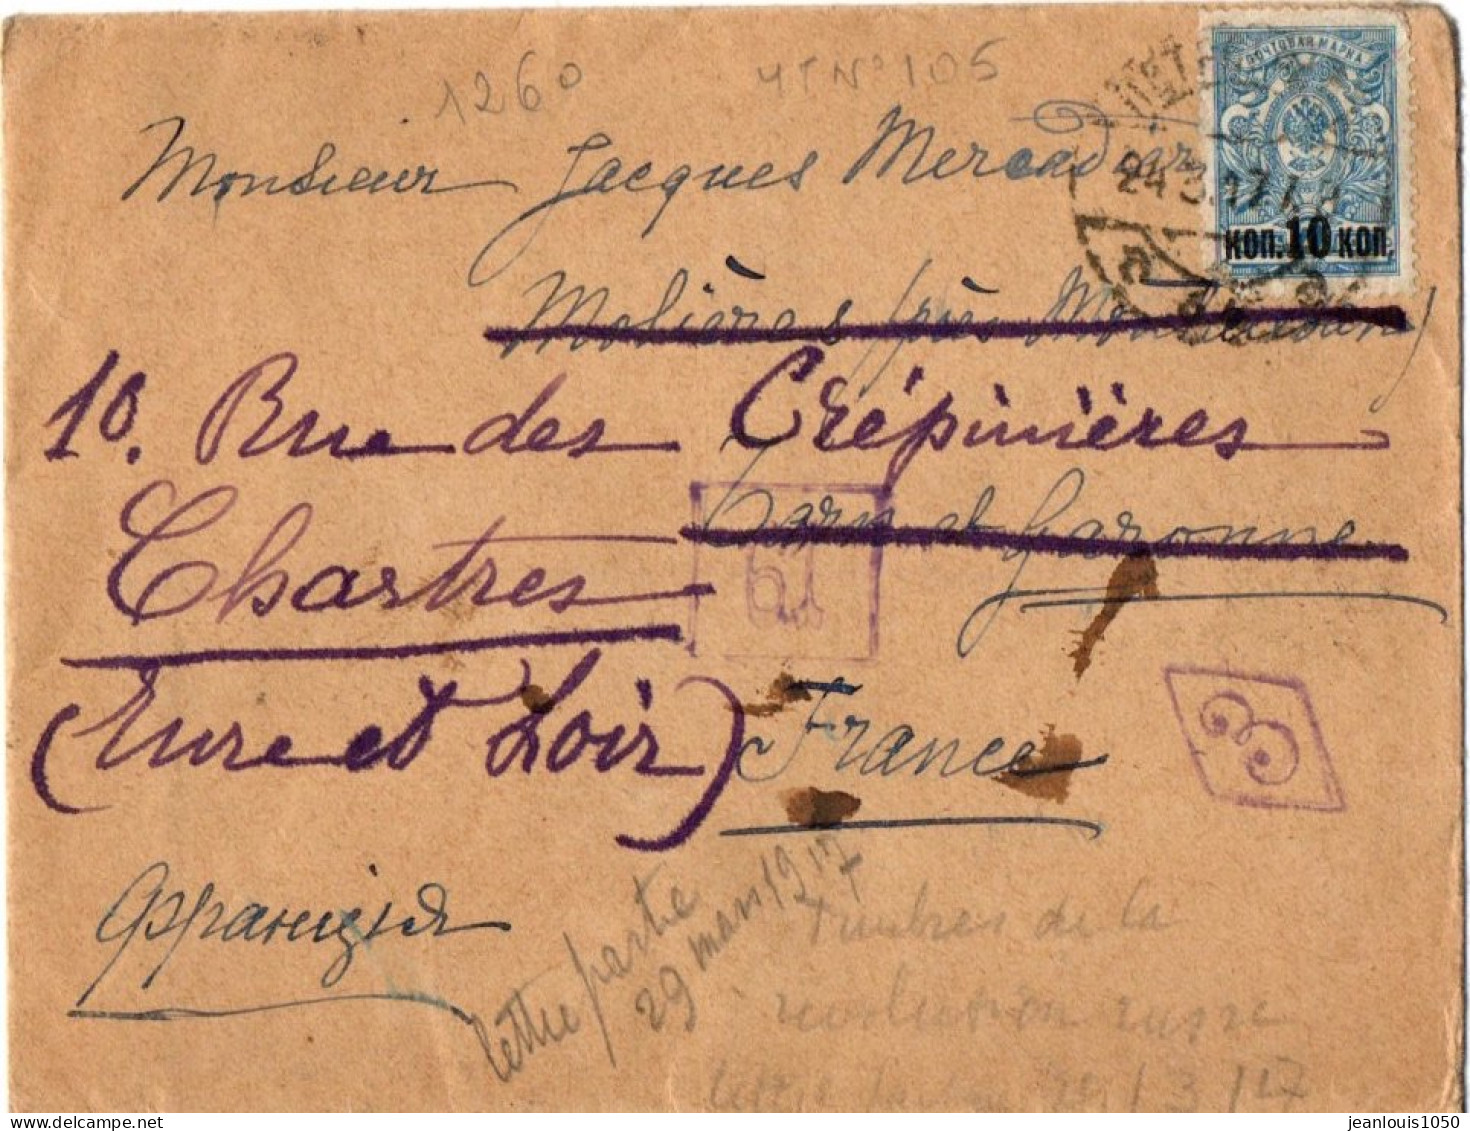 1260
YT N° 105
ПОЧТОВАЯ МАРКА
24.3.17
КОП. 10 КОП.
Monsieur Jacques Mercadier
Molières (près Montauban)
10. Rue des Crépinières
Tarn et Garonne
Chartres
(Eure et Loir)
France
Франція
lettre partie
29 mars 1917
Timbres de la
révolution russe
/3/17
delcampe.net
jeanlouis1050